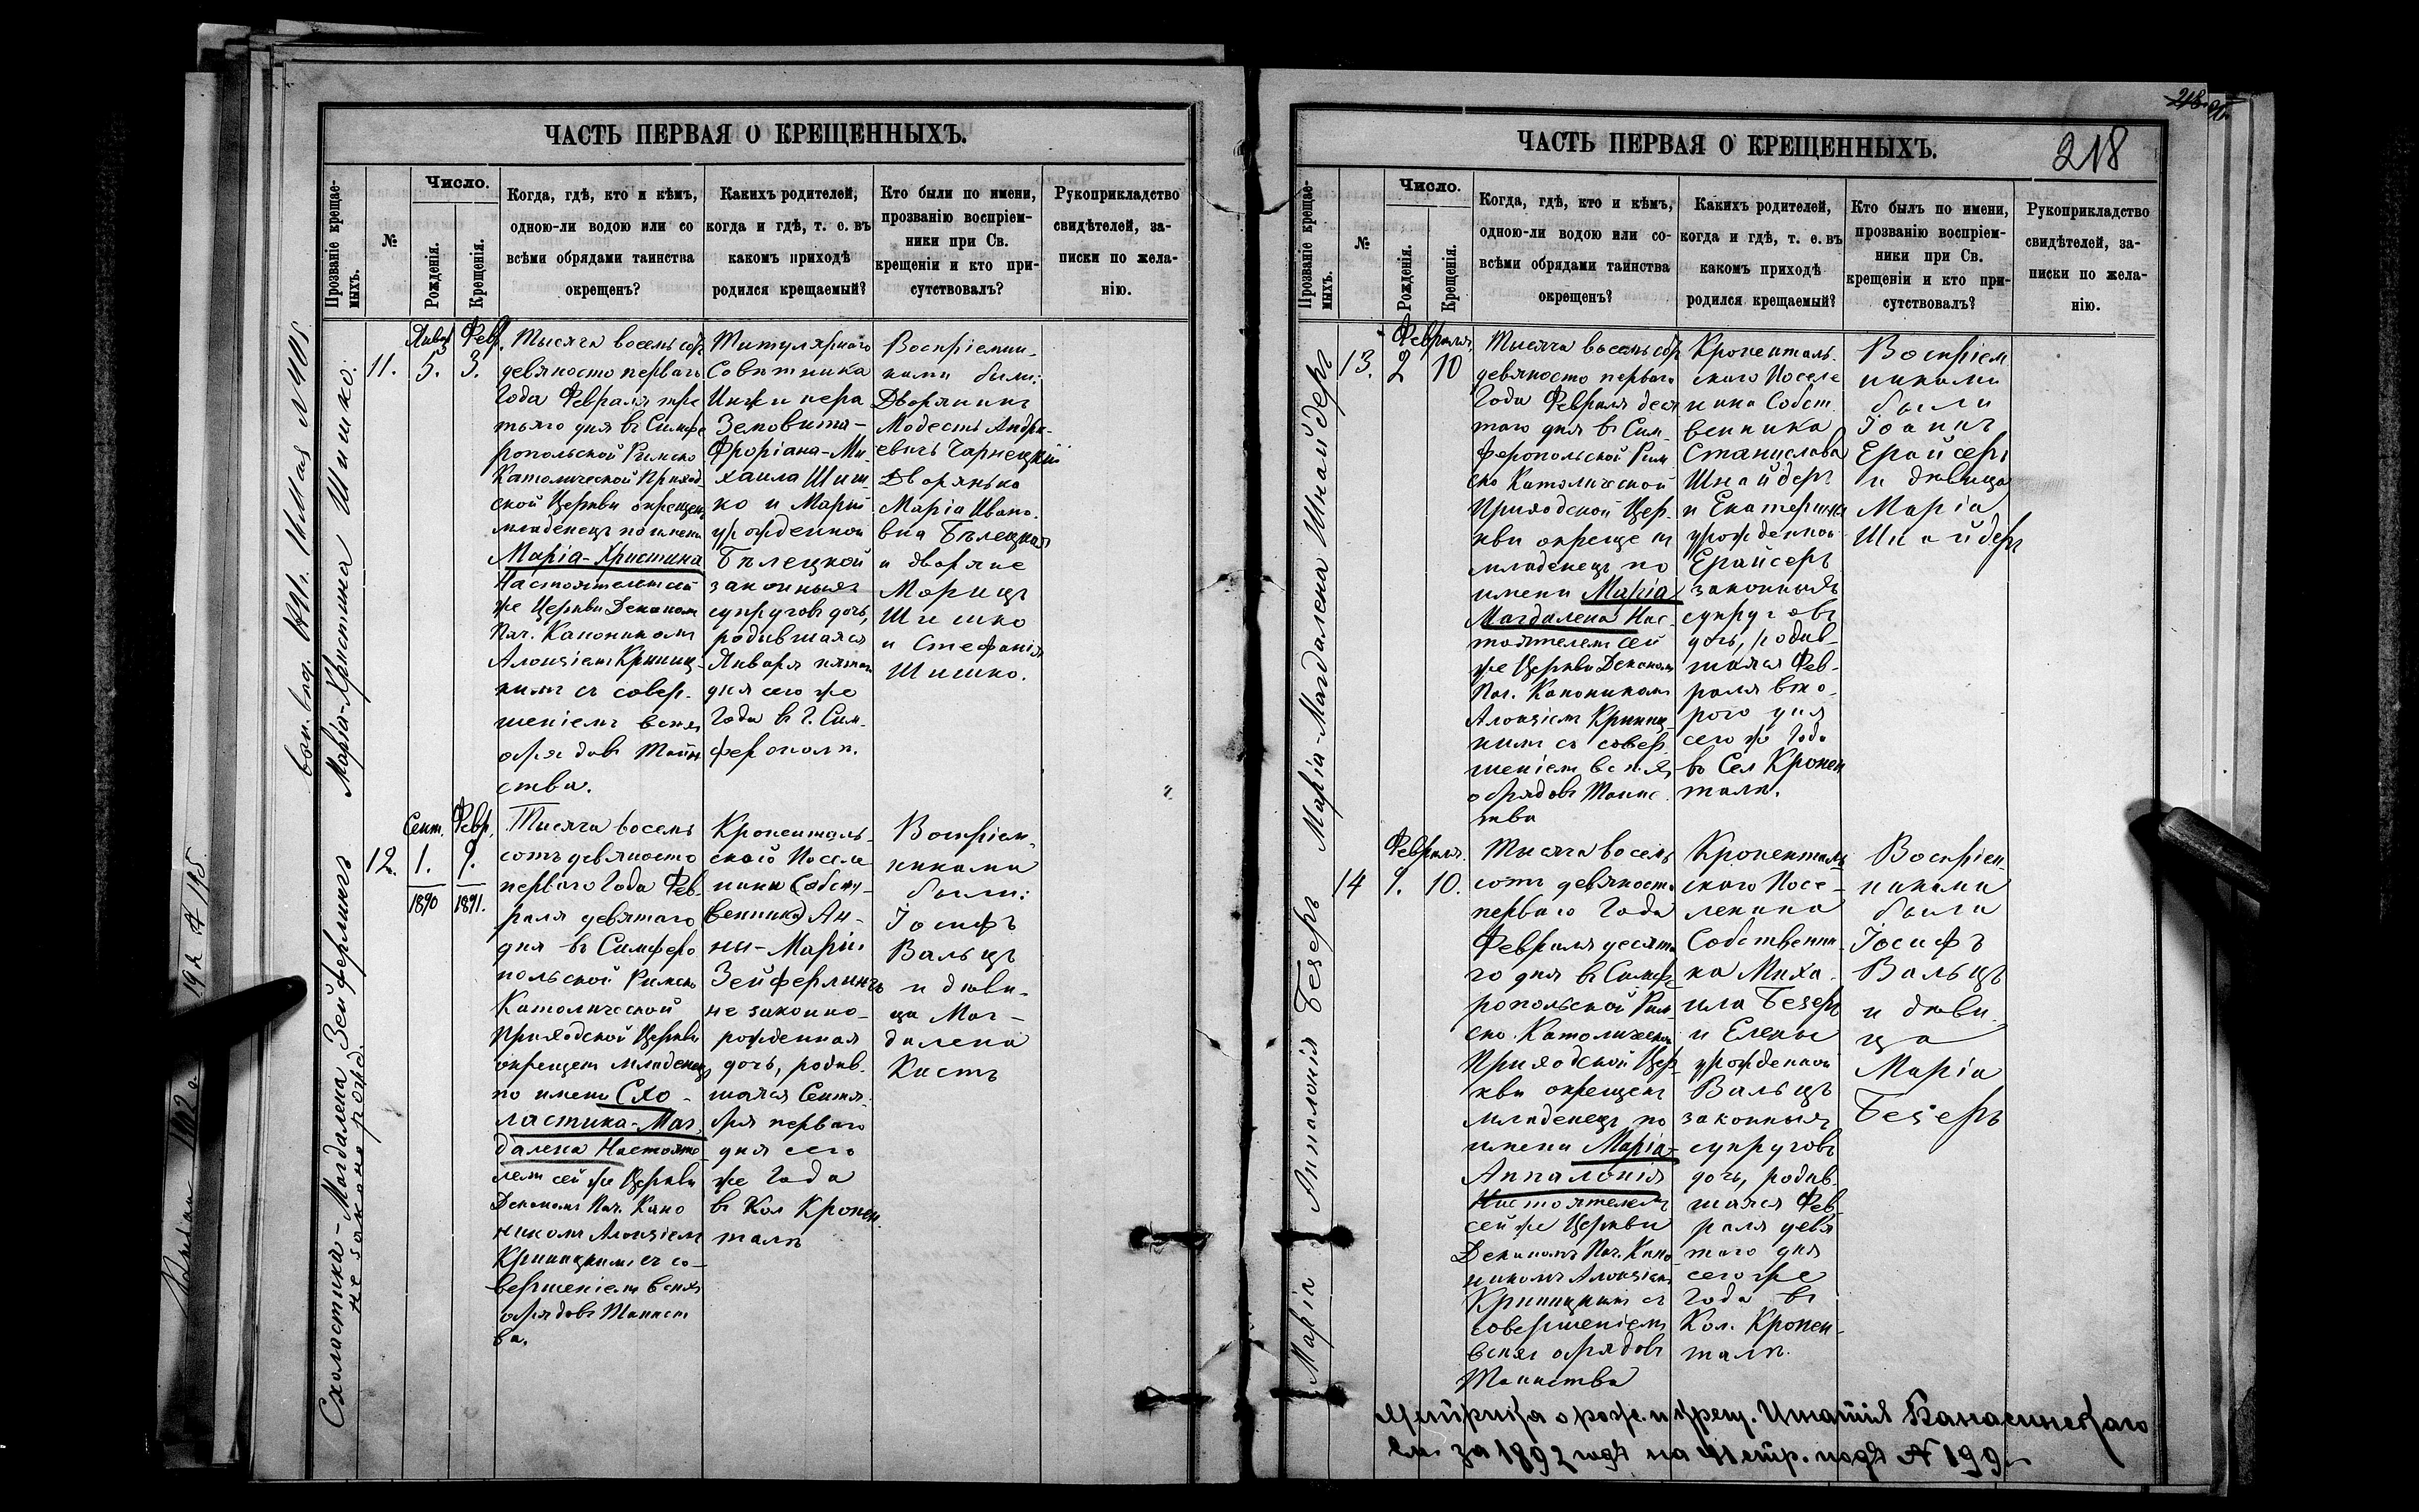 ЧАСТЬ ПЕРВАЯ О КРЕЩЕННЫХЪ.
Прозваніе крещае-
мыхъ.
№
Число.
Рожденія.
Крещенія.
Когда, гдѣ, кто и кѣмъ,
одною-ли водою или со
всѣми обрядами таинства
окрещенъ?
Какихъ родителей,
когда и гдѣ, т. е. въ
какомъ приходѣ
родился крещаемый?
Кто были по имени,
прозванію воспріем-
ники при Св.
крещеніи и кто при-
сутствовалъ?
Рукоприкладство
свидѣтелей, за-
писки по жела-
нію.
Марія-Христина Шишко.
11.
Январ
5.
Февр.
3.
Тысяча восемьсотъ
девяносто перваго
Года Февраля тре
тьяго дня въ Симфе
ропольской Римско
Католической Приход
ской Церкви окрещенъ
младенецъ по имени
Марія-Христина
Настоятелемъ сей
же Церкви Деканомъ
Поч. Каноникомъ
Алоизіемъ Криниц-
кимъ съ совер-
шеніемъ всѣхъ
обрядовъ Таин
ства.
Титулярнаго
Совѣтника
Инжинера
Земовита-
Фроріана-Ми
хаила Шиш-
ко и Маріи
урожденной
Бѣлецкой
законныхъ
супруговъ дочь,
родившаяся
Января пятаго
дня сего же
Года въ г. Сим-
ферополѣ.
Воспріемни-
ками были:
Дворянинъ
Модестъ Андре-
евичъ Чарнецкій
Дворянька
Марія Ивано-
вна Бѣлецкая
и дворяне
Морицъ
Шишко
и Стефанія
Шишко.
Схоластика-Магдалена Зейферлингъ
не законо рожд.
12.
Сент.
1.
1890
Февр.
9.
1891.
Тысяча восемь
сотъ девяносто
перваго Года Фев-
раля девятаго
дня въ Симферо
польской Римско
Католической
Приходской Церкви
окрещенъ младенецъ
по имени Схо-
ластика-Маг-
далена Настояте-
лемъ сей же Церкви
Деканомъ Поч. Кано
никомъ Алоизіемъ
Криницкимъ съ со-
вершеніемъ всѣхъ
обрядовъ Таинст
ва.
Кроненталь-
скаго Поселя
нина Собст-
венника Ан-
ны-Маріи
Зейферлингъ
не законно-
рожденная
дочь, родив-
шаяся Сентя-
бря перваго
дня сего
же Года
въ Кол Кронен
талѣ
Воспріем-
никами
были:
Іосифъ
Вальцъ
и дѣви-
ца Маг-
далена
Кистъ
ЧАСТЬ ПЕРВАЯ О КРЕЩЕННЫХЪ.
218
Прозваніе крещае-
мыхъ.
№
Число.
Рожденія.
Крещенія.
Когда, гдѣ, кто и кѣмъ,
одною-ли водою или со-
всѣми обрядами таинства
окрещенъ?
Какихъ родителей,
когда и гдѣ, т. е. въ
какомъ приходѣ
родился крещаемый?
Кто былъ по имени,
прозванію воспріем-
ники при Св.
крещеніи и кто при-
сутствовалъ?
Рукоприкладство
свидѣтелей, за-
писки по жела-
нію.
Марія-Магдалена Шнайдеръ
13.
Февраля.
2
10
Тысяча восемьсотъ
девяносто перваго
Года Февраля деся
таго дня въ Сим-
феропольской Рим
ско Католической
Приходской Цер-
кви окрещенъ
младенецъ по
имени Марія
Магдалена Нас-
тоятелемъ сей
же Церкви Деканомъ
Поч. Каноникомъ
Алоизіемъ Криниц-
кимъ съ совер-
шеніемъ всѣхъ
обрядовъ Таинс
тва
Кроненталь-
скаго Поселя
нина Собст
венника
Станислава
Шнайдеръ
и Екатерины
урожденной
Ерайсеръ
законныхъ
супруговъ
дочь, родив-
шаяся Фев-
раля вто-
рого дня
сего же Года
въ Сел Кронен
талѣ.
Воспріем
никами
были
Іоаннъ
Ерайсеръ
и дѣвица
Марія
Шнайдеръ
Марія Аппалонія Безеръ
14
Февраля.
9.
10.
Тысяча восемь
сотъ девяносто
перваго Года
Февраля десята
го дня въ Симфе
ропольской Рим-
ско Католической
Приходской Цер-
кви окрещенъ
младенецъ по
имени Марія-
Аппалонія
Настоятелемъ
сей же Церкви
Деканомъ Поч. Кано
никомъ Алоизіемъ
Криницкимъ съ
совершеніемъ
всѣхъ обрядовъ
Таинства
Кроненталь
скаго Посе-
лянина
Собственни-
ка Миха-
ила Безеръ
и Елены
урожденной
Вальцъ
законныхъ
супруговъ
дочь, родив-
шаяся Фев-
раля девя
таго дня
сего же
Года въ
Кол. Кронен-
талѣ.
Воспріем
никами
были
Іосифъ
Вальцъ
и дѣви
ца
Марія
Безеръ
Метрика о рожд. и крещ. Игнатія Банасинскаго
см. за 1892 годъ на 41 стр. подъ № 199